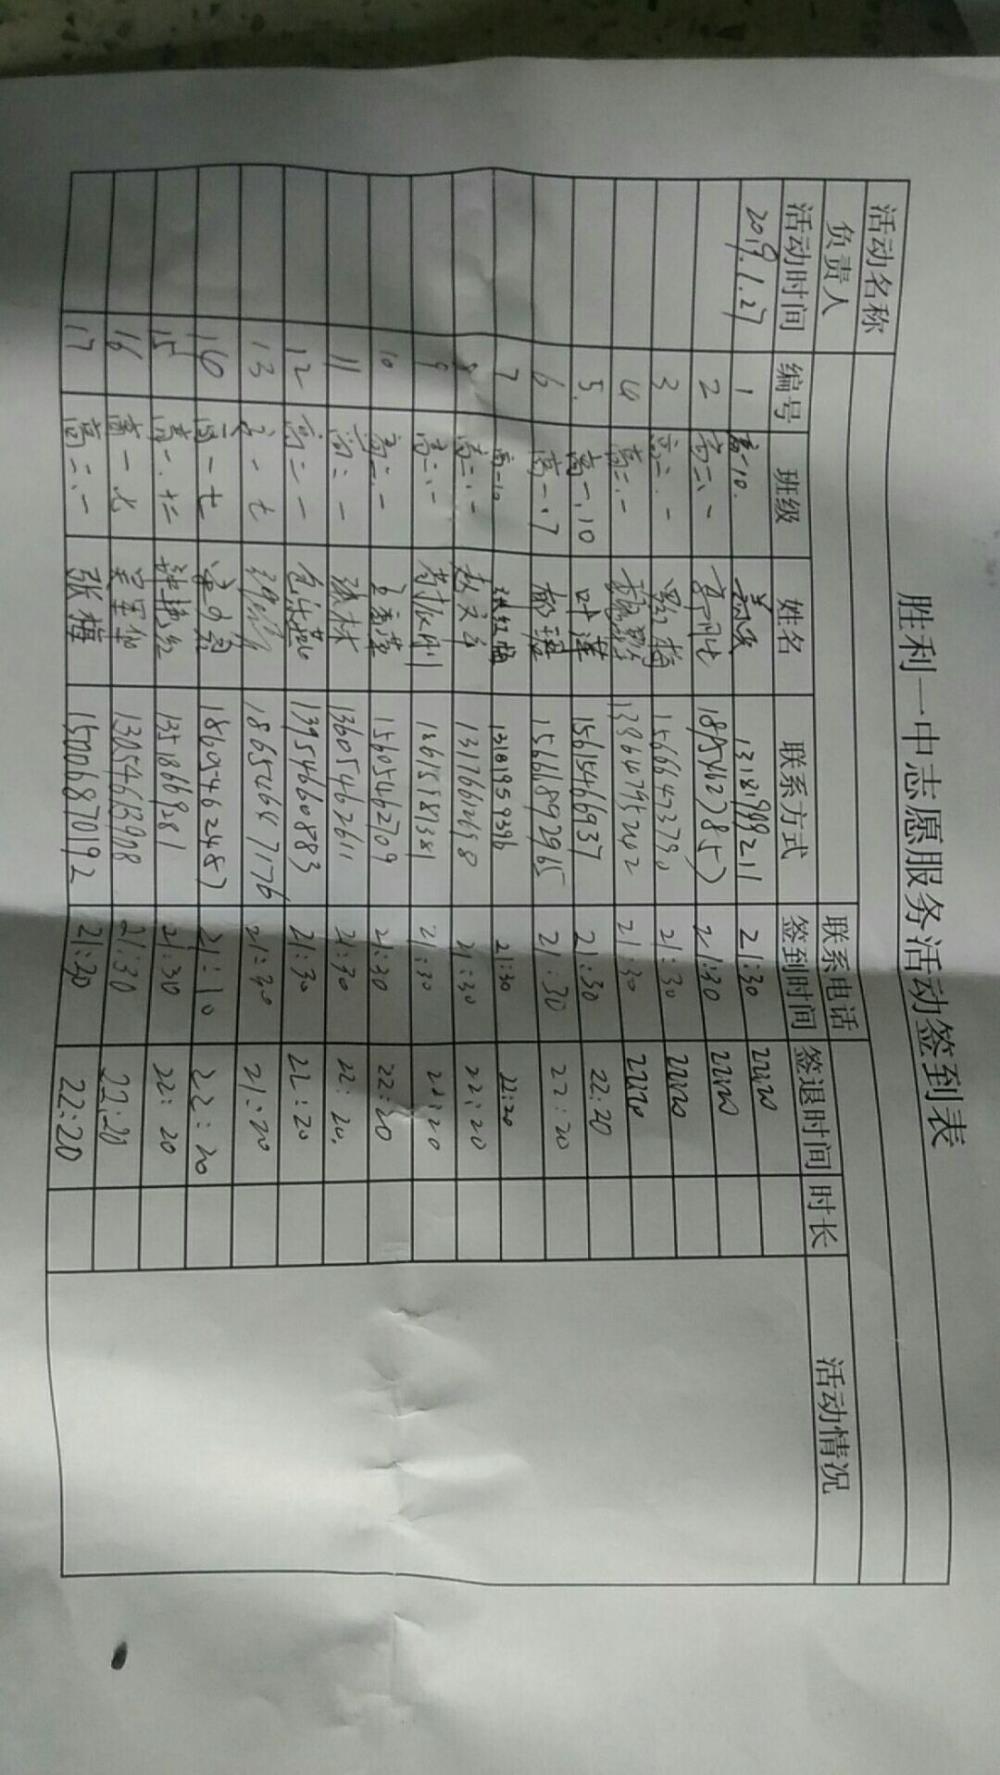 胜利一中志愿服务活动签到表
活动名称
负责人 联系电话
活动时间 编号 班级 姓名 联系方式 签到时间 签退时间 时长 活动情况
2019.1.27 1 高一10. 13181999211 21:30 22:20
2 高二、一 21:30 22:20
3 高二、一 15666473790 21:30 22:20
4 高二、一 13964795202 21:30 22:20
5. 高一、10 叶莲 15615466937 21:30 22:20
6 高一、7 郝谡 15661892965 21:30 22:20
7 高一10 张红梅 13181959396 21:30 22:20
8 高二、一 13176612698 21:30 22:20
9 高二、一 13615581381 21:30 22:20
10 高二、一 15605462709 21:30 22:20
11 高二、一 张林 13605462611 21:30 22:20.
12 高二、一 13954660883 21:30 22:20
13 高一七 21:30 21:20
14 高一七 18695462487 21:10 22:20
15 高一、十二 钟艳红 21:30 22:20
16 高一七 13054613908 21:30 22:20
17 高二、一 张梅 15006870192 21:30 22:20